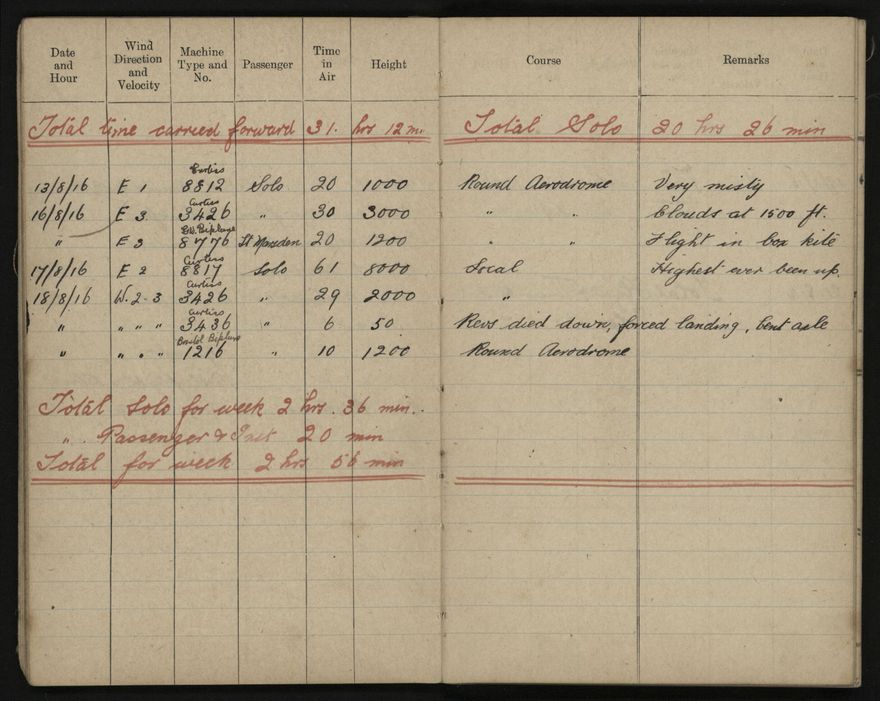 Date and Hour Wind Direction and Velocity Machine Type and No. Passenger Time in Air Height Course Remarks
Total time carried forward 31. hrs 12 m. Total Solo 20 hrs 26 min
Curtiss
13/8/16 E 1 8812 Solo 20 1000 Round Aerodrome Very misty
Curtiss
16/8/16 E 3 3426 " 30 3000 " " Clouds at 1500 ft.
G.W. Biplane
" E 3 8776 Lt 20 1200 " " Flight in box kite
Curtiss
17/8/16 E 2 8817 Solo 61 8000 Local Highest ever been up.
Curtiss
18/8/16 W. 2-3 3426 " 29 2000 "
Curtiss
" " " " 3436 " 6 50 Revs died down, forced landing, bent axle
Bristol Biplane
" " " " 1216 " 10 1200 Round Aerodrome
Total Solo for week 2 hrs. 36 min.
" Passenger & Inst 20 min
Total for week 2 hrs 56 min